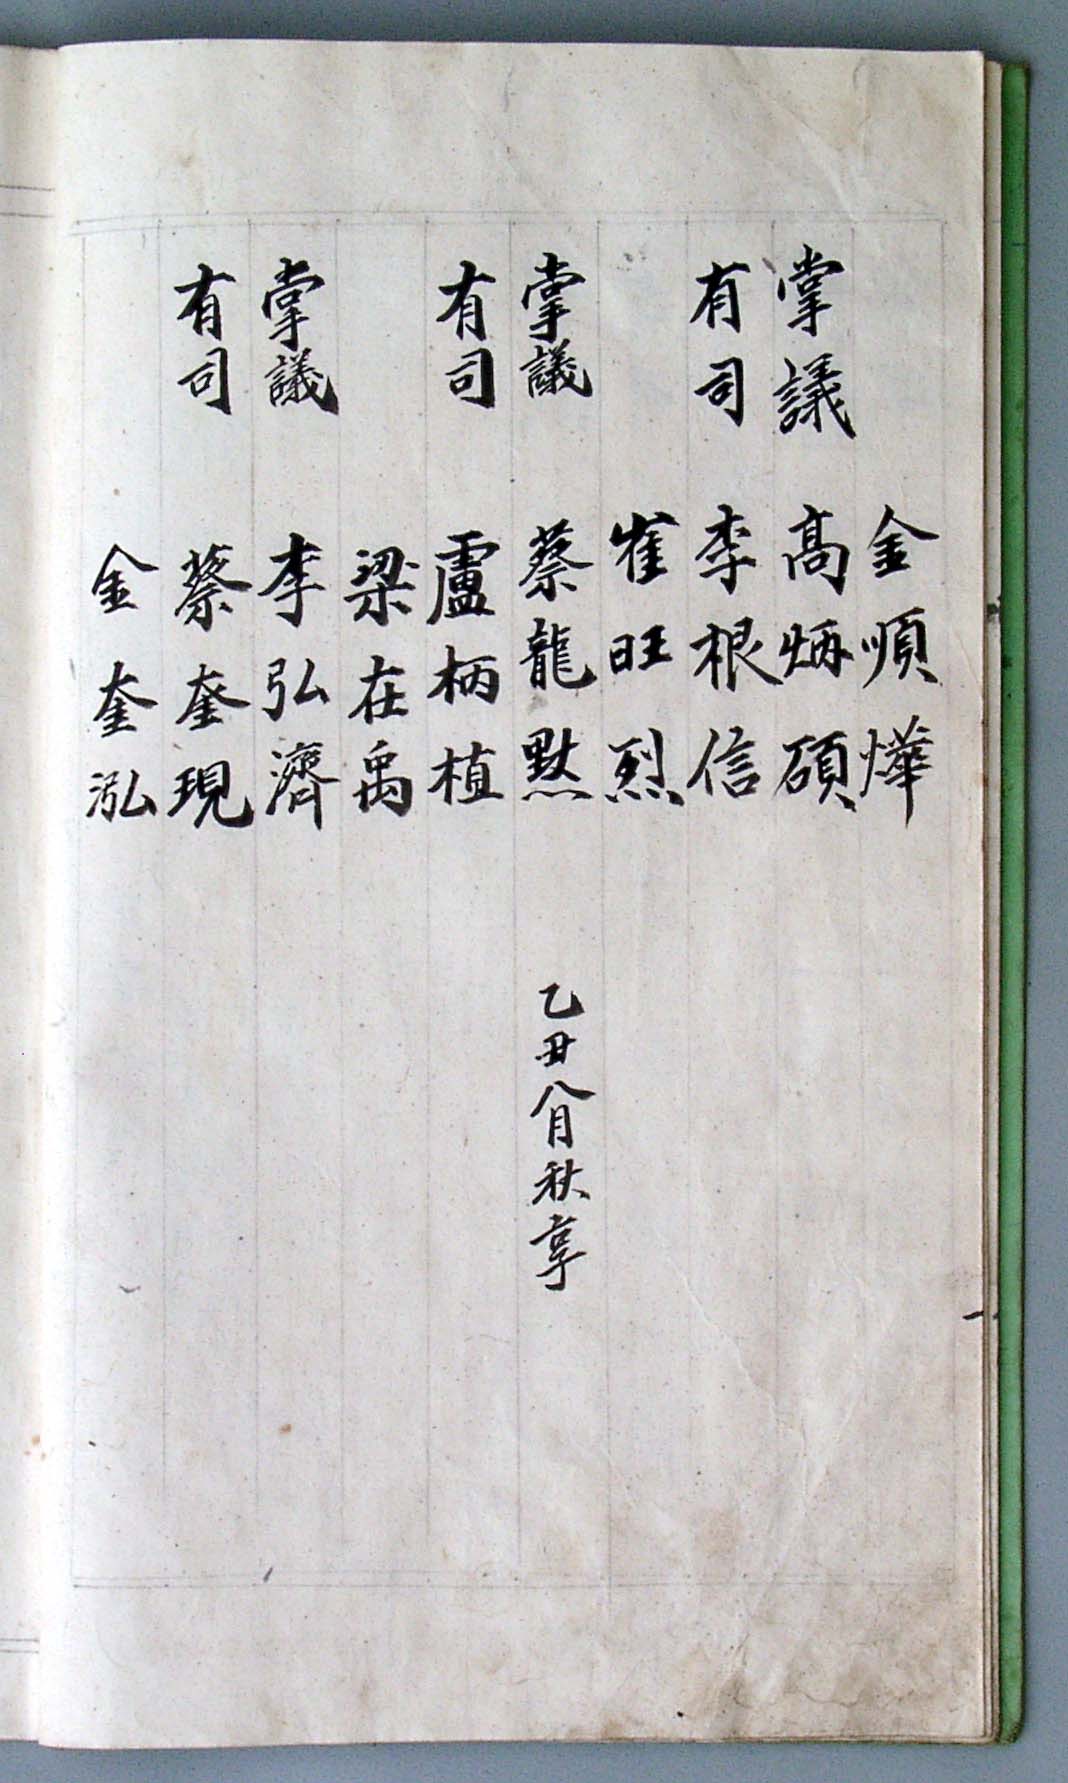 金順燁
掌議 高炳碩
有司 李根信
崔旺烈
掌議 蔡龍默 乙丑八月秋享
有司 盧柄植
梁在禹
掌議 李弘濟
有司 蔡奎現
金奎泓